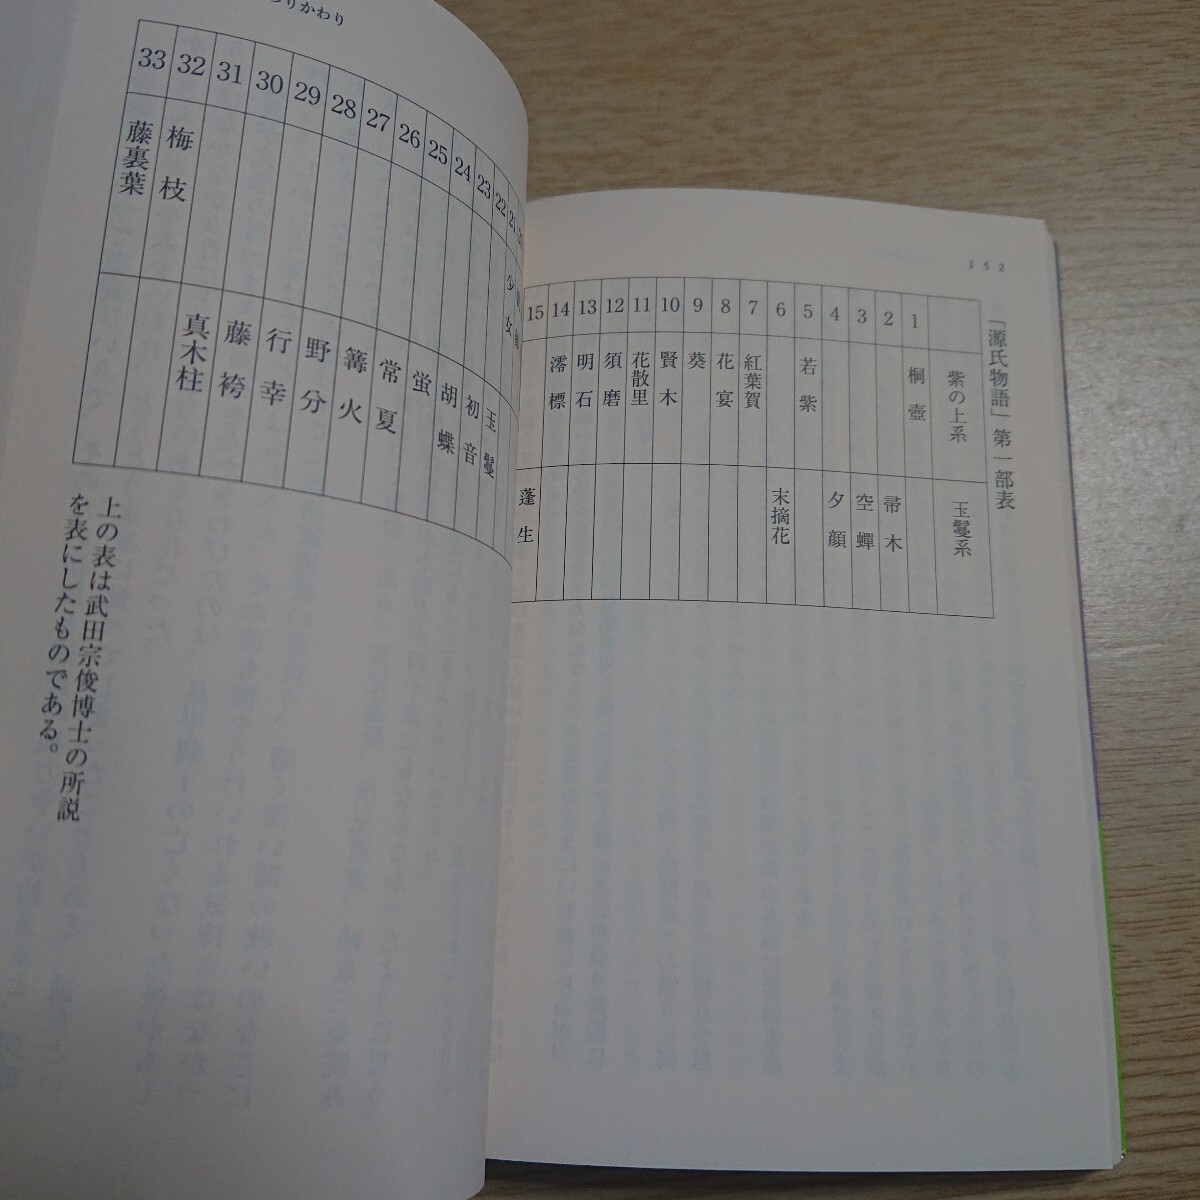 152
『源氏物語』第一部表
紫の上系 玉鬘系
1 桐壺
2 帚木
3 空蟬
4 夕顔
5 若紫
6 末摘花
7 紅葉賀
8 花宴
9 葵
10 賢木
11 花散里
12 須磨
13 明石
14 澪標
15 蓬生
りかわり
21 少女
22 玉鬘
23 初音
24 胡蝶
25 蛍
26 常夏
27 篝火
28 野分
29 行幸
30 藤袴
31 真木柱
32 梅枝
33 藤裏葉
上の表は武田宗俊博士の所説
を表にしたものである。